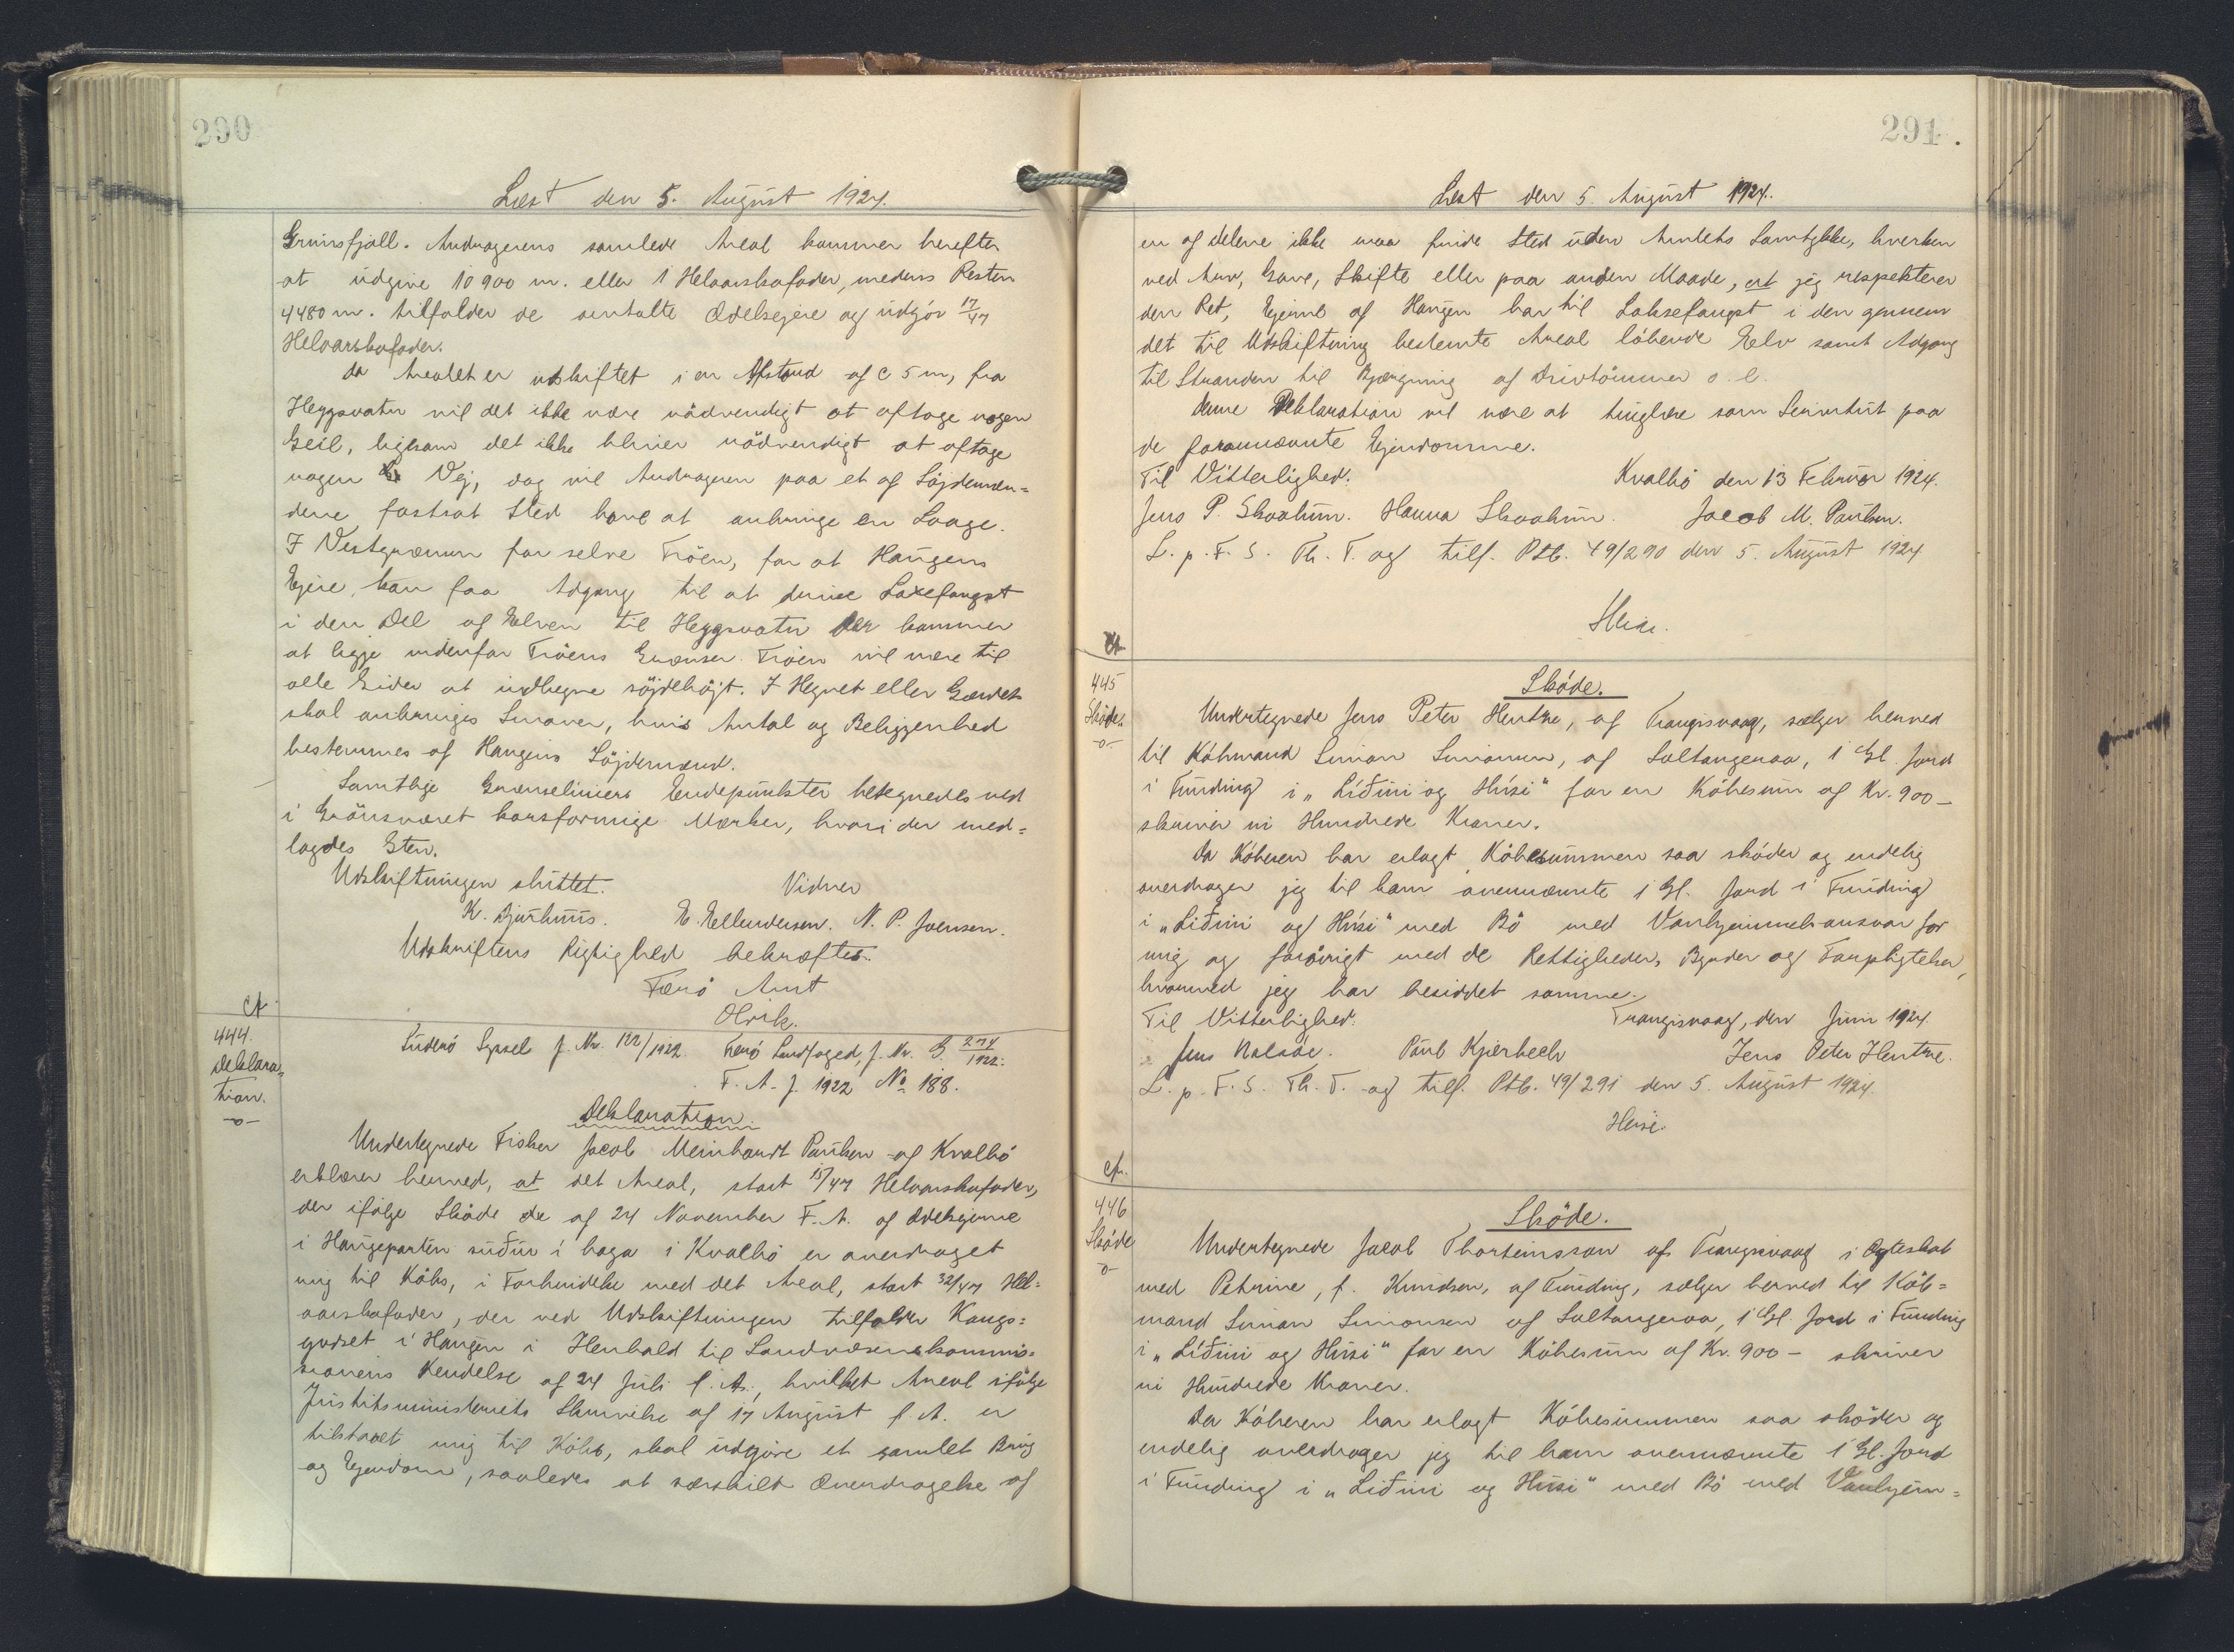 290
Læst den 5. August 1924.
Grimsfjall. Andragerens samlede Areal kommer herefter
at udgive 10900 m. eller 1 Helaarskofoder, medens Resten
4480 m. tilfalder de omtalte Odelsejere og udgör 17/47
Helaarskofoder.
Da Arealet er udskiftet i en Afstand af c 5 m, fra
Heygsvatn vil det ikke være nödvendigt at aftage nogen
Geil, ligesom det ikke bliver nödvendigt at aftage
nogen Vej, dog vil Andrageren paa et af Löjdemæn=
dene fastsat Sted have at anbringe en Laage.
I Vestgrænsen for selve Tröen, for at Haugens
Ejere, kan faa Adgang til at drive Laxefangst
i den Del af Elven til Heygsvatn der kommer
at ligge indenfor Tröens Grænser. Tröen vil være til
alle Sider at indhegne söjdehöjt. I Hegnet eller Gærdet
skal anbringes Smaver, hvis Antal og Beliggenhed
bestemmes af Haugens Löjdemænd.
Samtlige Grænseliniers Endepunkter betegnedes ved
i Grönsværet korsformige Mærker, hvori der ned=
lagdes Sten.
Udskiftningen sluttet.
Vidner
K. Djurhuus. E. Ellendersen. N. P. Joensen.
Udskriftens Rigtighed bekræftes.
Færö Amt
Olrik.
cf.
444.
Deklara=
tion.
-o-
Suderö Syssel J. Nr. 122/1922. Færö Landfoged, J. Nr. G. 274/1922.
F. A. J. 1922 No 188.
Deklaration
Undertegnede Fisker Jacob Meinhardt Paulsen af Kvalbö
erklærer herved, at det Areal, stort 15/47 Helaarskofoder,
der ifölge Sköde de af 24 November F. A. af Odelsejerne
i Haugeparten suður i haga i Kvalbö er overdraget
mig til Köbs, i Forbindelse med det Areal, stort 32/47 Hel=
aarskofoder, der ved Udskiftningen tilfalder Kongs=
godset i Haugen i Henhold til Landvæsenskommis=
sionens Kendelse af 24 Juli f. A., hvilket Areal ifölge
Justitsministeriets Skrivelse af 17 August f. A. er
tilstaaet mig til Köbs, skal udgöre et samlet Brug
og Ejendom, saaledes at særskilt Overdragelse af
291.
Læst den 5. August 1924.
en af delene ikke maa finde Sted uden Amtets Samtykke, hverken
ved Arv, Gave, Skifte eller paa anden Maade, at jeg respekterer
den Ret, Ejerne af Haugen har til Laksefangst i den gennem
det til Udskiftning bestemte Areal löbende Elv samt Adgang
til Stranden til Bjærgning af Drivtömmer o. l.
denne Deklaration vil være at tinglæse som Servitut paa
de forannævnte Ejendomme.
Til Vitterlighed:
Kvalbö den 13 Februar 1924.
Jens P. Skaalum. Hanna Skaalum. Jacob M. Paulsen.
L. p. F. S. Th. T. og tilf. Ptb. 49/290 den 5. August 1924
Heise.
cf.
445
Sköde.
-o-
Sköde.
Undertegnede Jens Peter Hentze, af Trangisvaag, sælger herved
til Köbmand Simon Simonsen, af Saltangeraa, 1 Gl. Jord
i Funding i „Líðini og Húsi“ for en Köbesum af Kr. 900 –
skriver ni Hundrede Kroner.
Da Köberen har erlagt Köbesummen saa sköder og endelig
overdrager jeg til ham ovennævnte 1 Gl. Jord i Funding
i „Líðini og Húsi“ med Bö med Vanhjemmelsansvar for
mig og forövrigt med de Rettigheder, Byrder og Forpligtelser,
hvormed jeg har besiddet samme.
Til Vitterlighed:
Trangisvaag, den Juni 1924.
Jens Nolsöe. Poul Kjerbech Jens Peter Hentze.
L. p. F. S. Th. T. og tilf. Ptb. 49/291 den 5. August 1924.
Heise.
cf.
446
Sköde
-o-
Sköde.
Undertegnede Jacob Thorsteinsson af Trangisvaag i Ægteskab
med Petrine, f. Knudsen, af Funding, sælger herved til Köb=
mand Simon Simonsen af Saltangeraa, 1 Gl. Jord i Funding
i „Líðini og Húsi“ for en Köbesum af Kr. 900 – skriver
ni Hundrede Kroner.
Da Köberen har erlagt Köbesummen saa sköder og
endelig overdrager jeg til ham ovennævnte 1 Gl. Jord
i Funding i „Líðini og Húsi“ med Bö med Vanhjem=